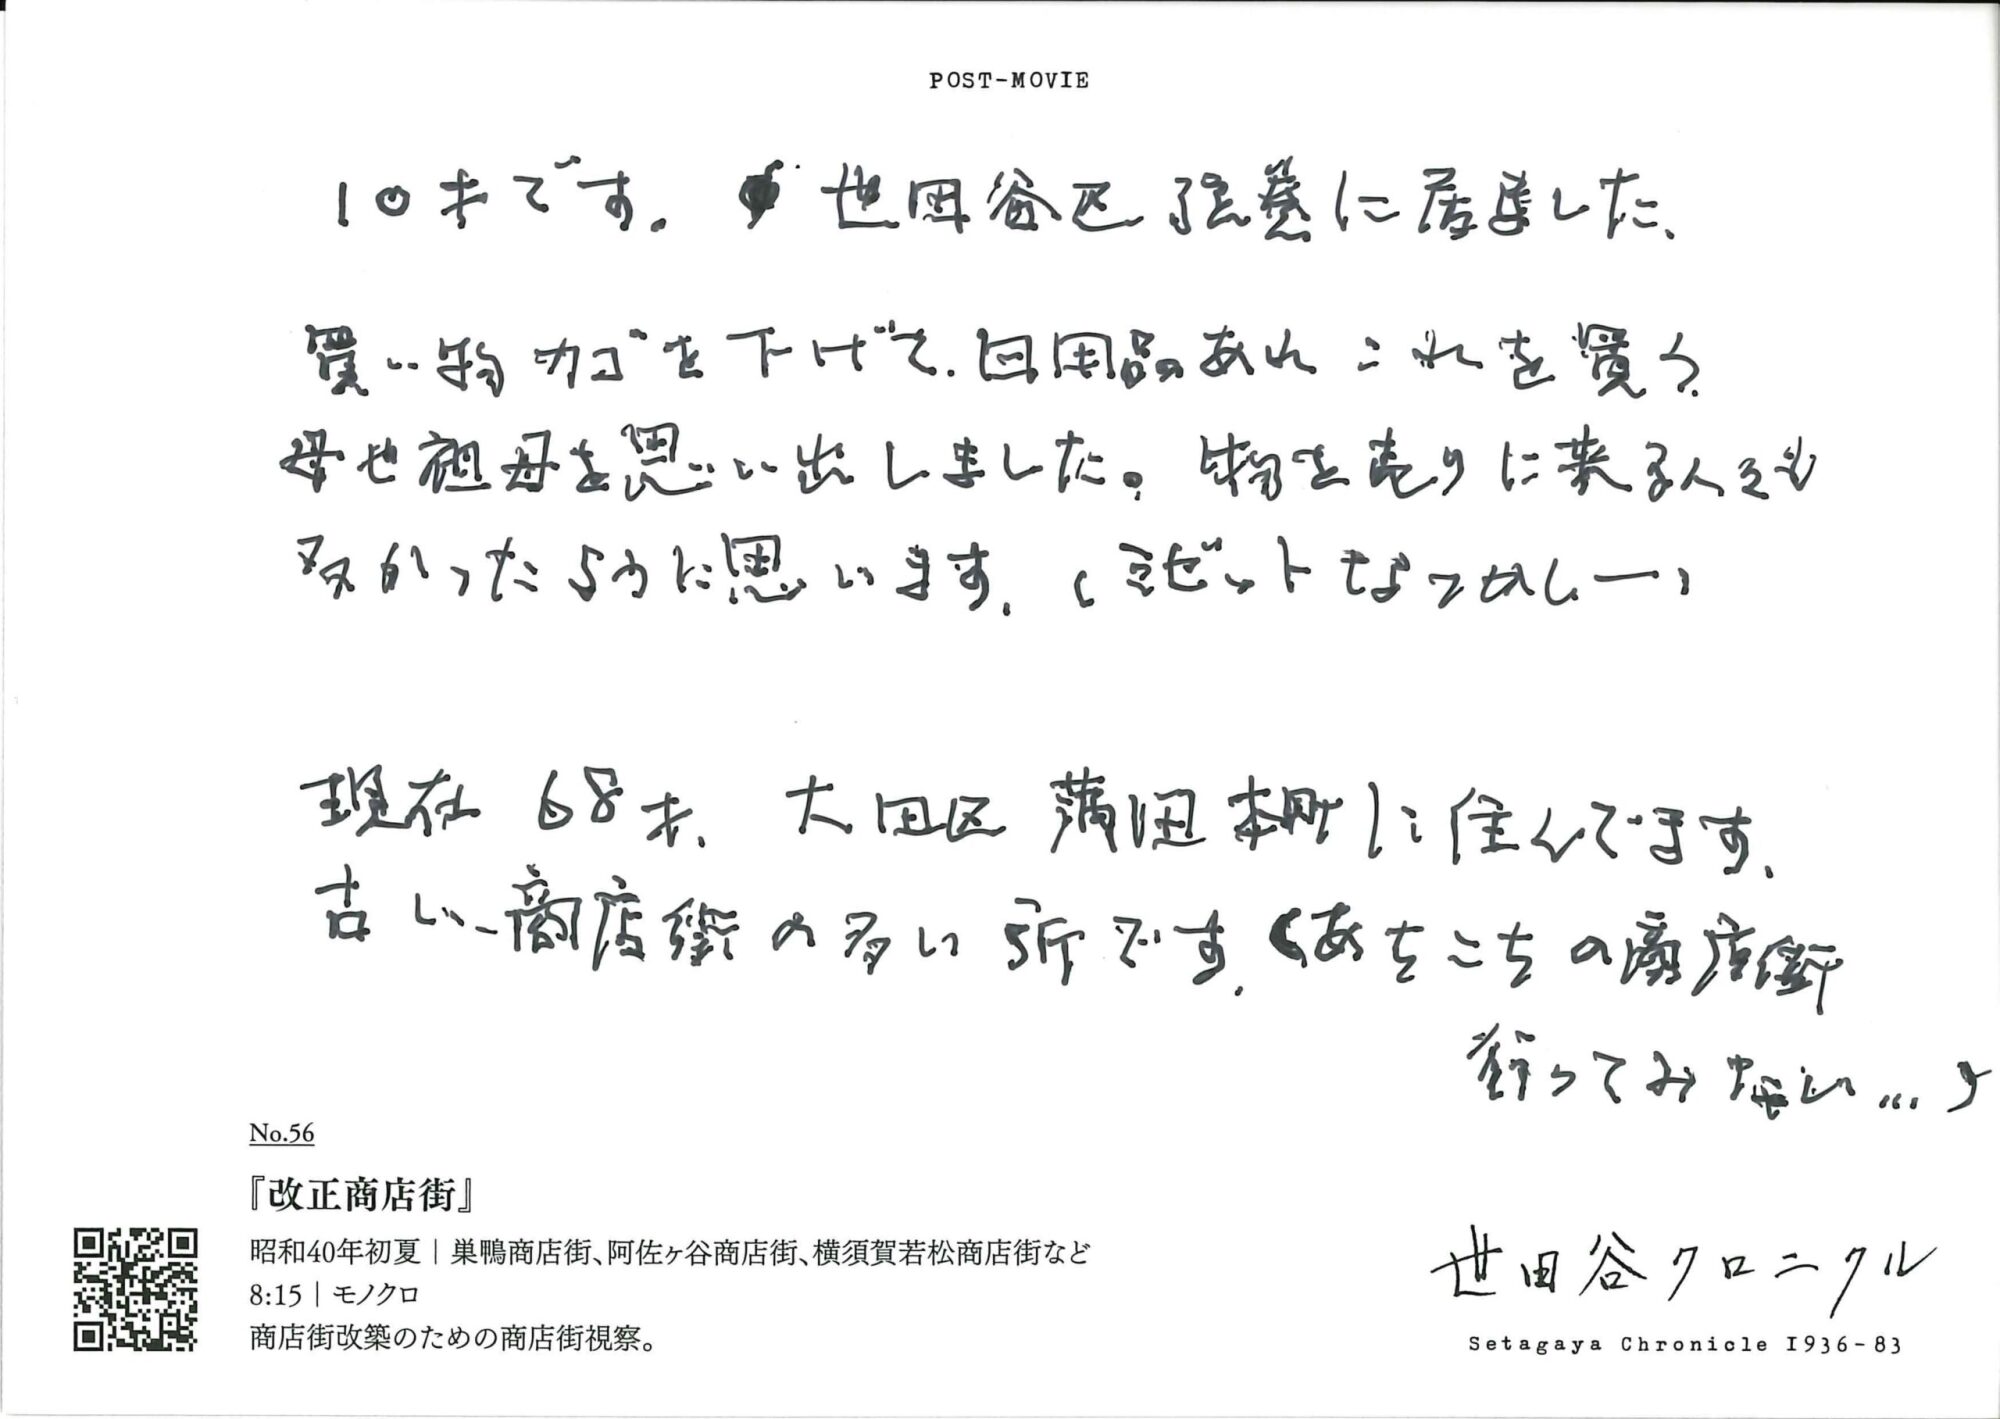 POST-MOVIE
10才です。世田谷区弦巻に居ました、
買い物カゴを下げて、日用品のあれこれを買う
母や祖母を思い出しました。物を売りに来る人々も
多かったように思います。(ミゼットなつかしー)
現在68才、大田区蒲田本町に住んでます、
古い商店街の多い所です。(あちこちの商店街
行ってみたい…)
No.56
『改正商店街』
昭和40年初夏|巣鴨商店街、阿佐ヶ谷商店街、横須賀若松商店街など
8:15|モノクロ
商店街改築のための商店街視察。
世田谷クロニクル
Setagaya Chronicle 1936-83